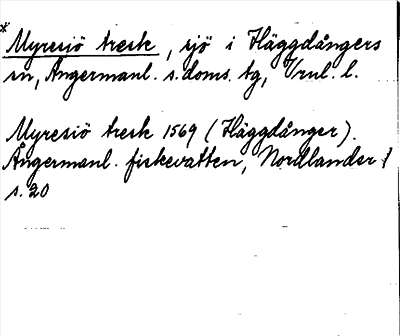 * Myresjö tresk, sjö i Häggdångers
sn, Ångermanl. s. doms. tg, Vrnl. l.
Myresiö tresk 1569 (Häggdånger).
Ångermanl. fiskevatten, Nordlander 1
s. 20